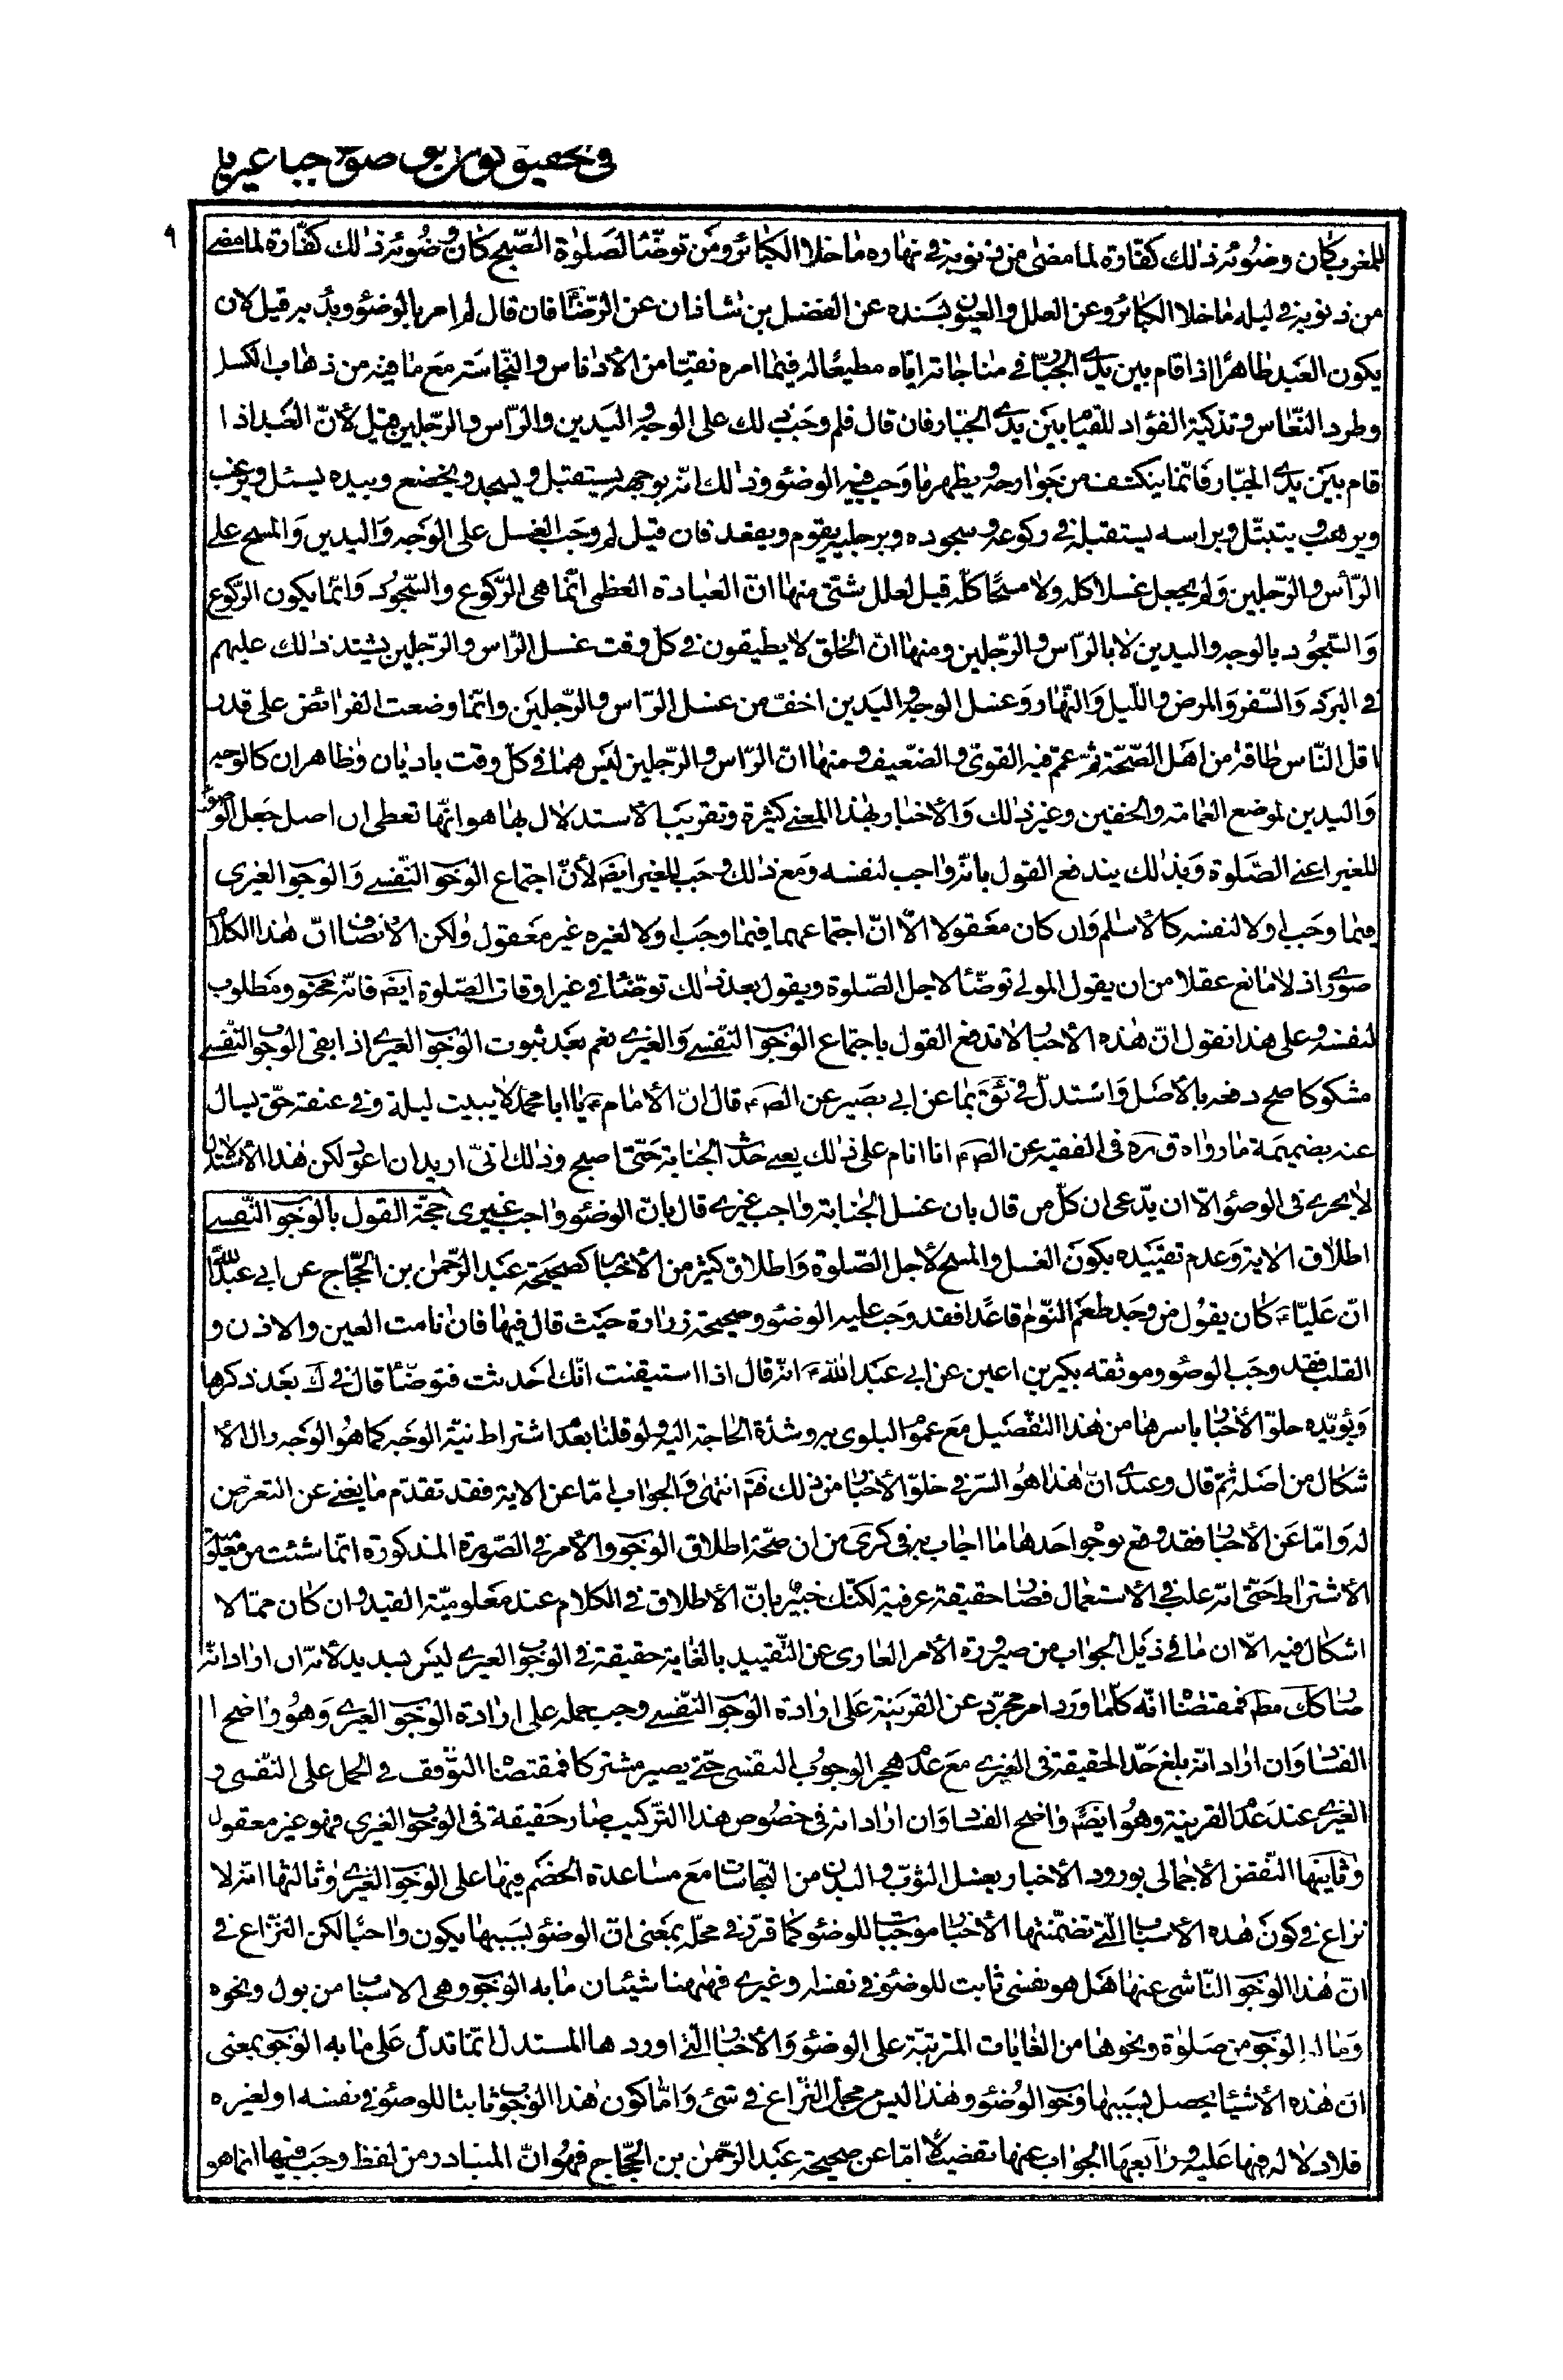 للمغرب كان وضوئه ذلك كفارة لما مضى من ذنوبه في نهاره ما خلا الكبائر ومن توضأ لصلوة الصبح كان وضوئه ذلك كفارة لما مضى
من ذنوبه في ليله ما خلا الكبائر وعن العلل والعيون بسنده عن الفضل بن شاذان عن الرضا فان قال لم امر بالوضوء وبدء به قيل لان
يكون العبد طاهرا اذا قام بين يدي الجبار في مناجاته اياه مطيعا له فيما امره نقيا من الأدناس والنجاسة مع ما فيه من ذهاب الكسل
وطرد النعاس وتذكية الفؤاد للقيام بين يدي الجبار فان قال فلم وجب ذلك على الوجه واليدين والرأس والرجلين قيل لأن العبد اذا
قام بين يدي الجبار فانما ينكشف من جوارحه ويظهر ما وجب فيه الوضوء وذلك انه بوجهه يستقبل ويسجد ويخضع وبيده يسئل ويرغب
ويرهب ويتبتل وبراسه يستقبله في ركوعه وسجوده وبرجليه يقوم ويقعد فان قيل لم وجب الغسل على الوجه واليدين والمسح على
الرأس والرجلين ولم يجعل غسلا كله ولا مسحا كله قيل لعلل شتى منها ان العبادة العظمى انما هي الركوع والسجود وانما يكون الركوع
والسجود بالوجه واليدين لا بالرأس والرجلين ومنها ان الخلق لا يطيقون في كل وقت غسل الرأس والرجلين يشتد ذلك عليهم
في البرد والسفر والمرض والليل والنهار وغسل الوجه واليدين اخف من غسل الرأس والرجلين وانما وضعت الفرائض على قدر
اقل الناس طاقة من اهل الصحة ثم عم فيه القوي والضعيف ومنها ان الرأس والرجلين ليس هما في كل وقت باديان وظاهران كالوجه
واليدين لموضع العمامة والخفين وغير ذلك والأخبار بهذا المعنى كثيرة وتقريب الأستدلال بها هو انها تعطى ان اصل جعل الوضوء
للغير اعني الصلوة وبذلك يندفع القول بانه واجب لنفسه ومع ذلك وجب للغير ايضا لأن اجتماع الوجوب النفسي والوجوب الغيري
فيما وجب اولا لنفسه كالأسلام وان كان معقولا الا ان اجتماعهما فيما وجب اولا لغيره غير معقول ولكن الأنصاف ان هذا الكلام
صوري اذ لا مانع عقلا من ان يقول المولى توضأ لاجل الصلوة ويقول بعد ذلك توضأ في غير اوقات الصلوة ايضا فانه محبوب ومطلوب
لنفسه وعلى هذا نقول ان هذه الأخبار لا تدفع القول باجتماع الوجوب النفسي والغيري نعم بعد ثبوت الوجوب الغيري اذا بقى الوجوب النفسي
مشكوكا صح دفعه بالأصل واستدل في ئق بما عن ابي بصير عن الص ع قال ان الأمام ع يا ابا محمد لا يبيت ليلة وفي عنقه حق يسأل
عنه بضميمة ما رواه ق ره في الفقيه عن الص ع انا انام على ذلك يعني حدث الجنابة حتى اصبح وذلك اني اريد ان اعود لكن هذا الأستدلال
لا يجري في الوضوء الا ان يدعى ان كل من قال بان غسل الجنابة واجب غيري قال بان الوضوء واجب غيري حجة القول بالوجوب النفسي
اطلاق الاية وعدم تقييده بكون الغسل والمسح لأجل الصلوة واطلاق كثير من الأخبار كصحيحة عبد الرحمن بن الحجاج عن ابي عبد الله
ان عليا ع كان يقول من وجد طعم النوم قاعدا فقد وجب عليه الوضوء وصحيحة زرارة حيث قال فيها فان نامت العين والاذن و
القلب فقد وجب الوضوء وموثقه بكير بن اعين عن ابي عبد الله ع انه قال اذا استيقنت انك احدثت فتوضأ قال في ك بعد ذكرها
ويؤيده خلو الأخبار باسرها من هذا التفصيل مع عموم البلوى به وشدة الحاجة اليه ولو قلنا بعدم اشتراط نية الوجه كما هو الوجه زال الأ
شكال من اصله ثم قال وعندي ان هذا هو السر في خلو الأخبار من ذلك فتم انتهى والجواب اما عن الاية فقد تقدم ما يغني عن التعرض
له واما عن الأخبار فقد وقع بوجوه احدها ما اجاب به في كرى من ان صحة اطلاق الوجوب والأمر في الصورة المذكورة انما شئت من معلومية
الأشتراط حتى انه غلب في الأستعمال فصار حقيقة عرفية لكنك خبير بان الأطلاق في الكلام عند معلومية القيد وان كان مما لا
اشكال فيه الا ان ما في ذيل الجواب من صيرورة الأمر العاري عن التقييد بالغاية حقيقة في الوجوب الغيري ليس بسديد لأنه ان اراد انه
صار كك مط فمقتضاه انه كلما ورد امر مجرد عن القرينة على ارادة الوجوب النفسي وجب حمله على ارادة الوجوب الغيري وهو واضح ا
الفساد وان اراد انه بلغ حد الحقيقة في الغيري مع عدم هجر الوجوب النفسي حتى يصير مشتركا فمقتضاه التوقف في الحمل على النفسي و
الغيري عند عدم القرينة وهو ايضا واضح الفساد وان اراد انه في خصوص هذا التركيب صار حقيقة في الوجوب الغيري فهو غير معقول
وثانيها النقض الأجمالي بورود الأخبار بغسل الثوب والبدن من النجاسات مع مساعدة الخصم فيها على الوجوب الغيري وثالثها انه لا
نزاع في كون هذه الأسباب التي تضمنتها الأخبار موجبات للوضوء كما قرر في محله بمعنى ان الوضوء بسببها يكون واجبا لكن النزاع في
ان هذا الوجوب الناشي عنها هل هو نفسي ثابت للوضوء في نفسه او غيري فههنا شيئان ما به الوجوب وهي الاسباب من بول ونحوه
وما له الوجوب من صلوة ونحوها من الغايات المترتبة على الوضوء والأخبار التي اوردها المستدل انما تدل على ما به الوجوب بمعنى
ان هذه الأشياء يحصل بسببها وجوب الوضوء وهذا ليس من محل النزاع في شئ واما كون هذا الوجوب ثابتا للوضوء في نفسه او لغيره
فلا دلالة فيها عليه ورابعها الجواب عنها تفصيلا اما عن صحيحة عبد الرحمن بن الحجاج فهو ان المتبادر من لفظ وجب فيها انما هو